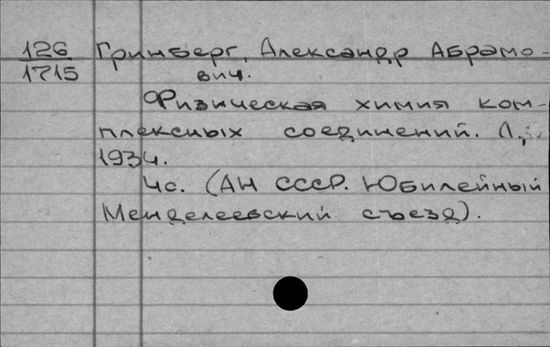 126 Гринберг, Александр Абрамо-
1715 вич.
Физическая химия ком-
плексных соединений. Л.,
1934.
4с. (АН СССР. Юбилейный
Менделеевский съезд).